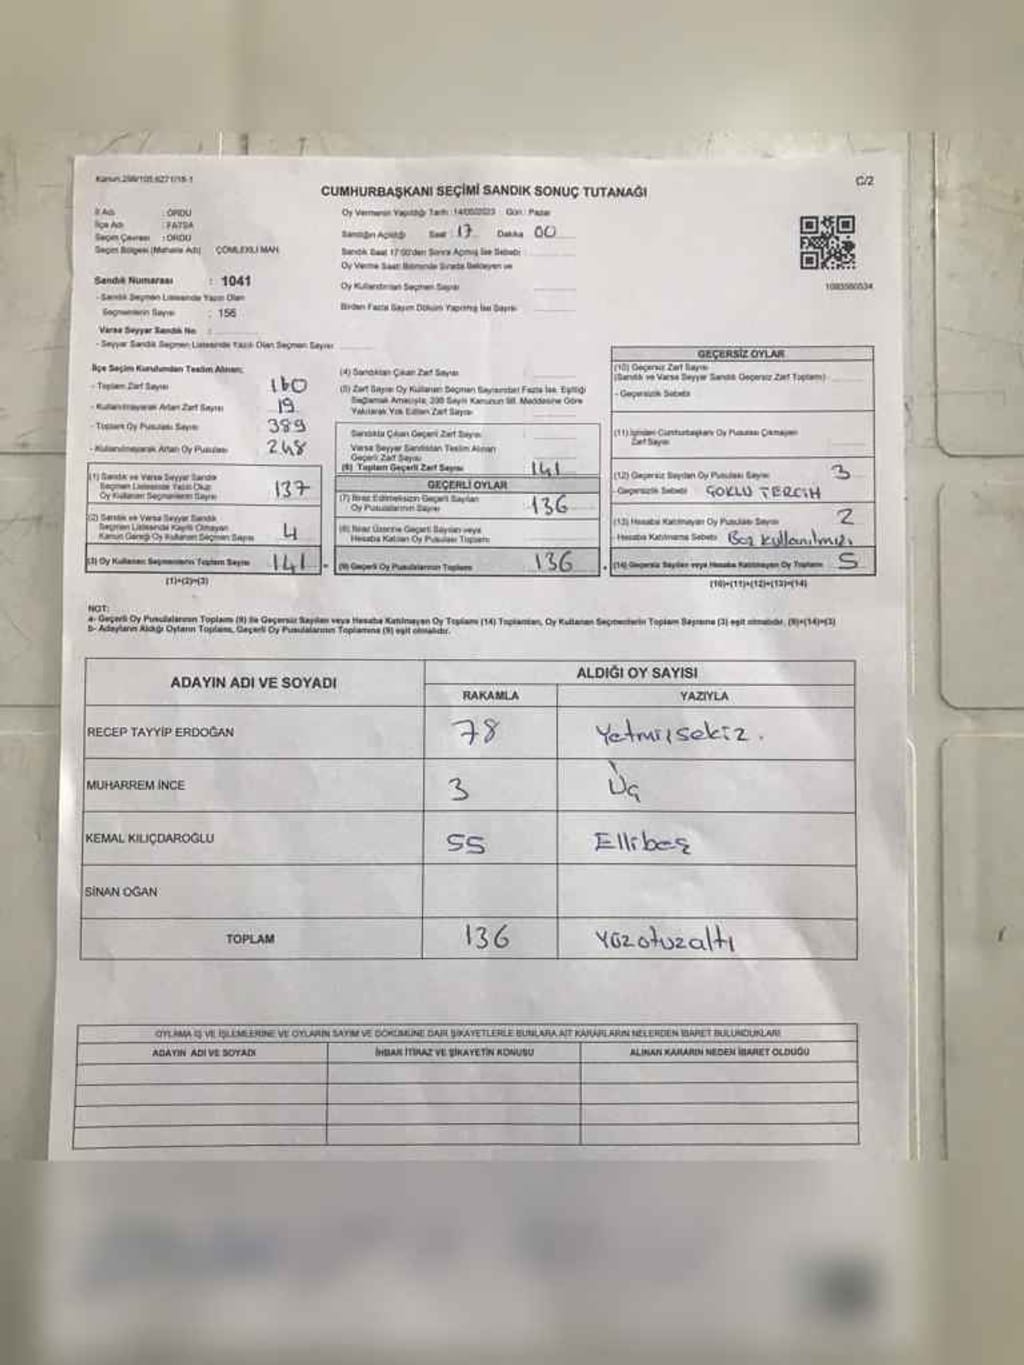 Kanun.298/105,6271/18-1
C/2
CUMHURBAŞKANI SEÇİMİ SANDIK SONUÇ TUTANAĞI
İl Adı : ORDU
İlçe Adı : FATSA
Seçim Çevresi : ORDU
Seçim Bölgesi (Mahalle Adı) ÇÖMLEKLİ MAH.
Sandık Numarası : 1041
- Sandık Seçmen Listesinde Yazılı Olan
Seçmenlerin Sayısı : 156
Varsa Seyyar Sandık No :
- Seyyar Sandık Seçmen Listesinde Yazılı Olan Seçmen Sayısı
Oy Vermenin Yapıldığı Tarih : 14/05/2023 Gün : Pazar
Sandığın Açıldığı Saat : 17 Dakika 00
Sandık Saat 17:00'den Sonra Açılmış İse Sebebi :
Oy Verme Saati Bitiminde Sırada Bekleyen ve
Oy Kullandırılan Seçmen Sayısı
Birden Fazla Sayım Döküm Yapılmış İse Sayısı
1093560534
İlçe Seçim Kurulundan Teslim Alınan;
- Toplam Zarf Sayısı 160
- Kullanılmayarak Artan Zarf Sayısı 19
- Toplam Oy Pusulası Sayısı 389
- Kullanılmayarak Artan Oy Pusulası 248
(1) Sandık ve Varsa Seyyar Sandık
Seçmen Listesinde Yazılı Olup
Oy Kullanan Seçmenlerin Sayısı 137
(2) Sandık ve Varsa Seyyar Sandık
Seçmen Listesinde Kayıtlı Olmayan
Kanun Gereği Oy Kullanan Seçmen Sayısı 4
(3) Oy Kullanan Seçmenlerin Toplam Sayısı 141
(1)+(2)=(3)
(4) Sandıktan Çıkan Zarf Sayısı
(5) Zarf Sayısı Oy Kullanan Seçmen Sayısından Fazla İse, Eşitliği
Sağlamak Amacıyla, 298 Sayılı Kanunun 98. Maddesine Göre
Yakılarak Yok Edilen Zarf Sayısı
Sandıkta Çıkan Geçerli Zarf Sayısı
Varsa Seyyar Sandıktan Teslim Alınan
Geçerli Zarf Sayısı
(6) Toplam Geçerli Zarf Sayısı 141
GEÇERLİ OYLAR
(7) İtiraz Edilmeksizin Geçerli Sayılan
Oy Pusulalarının Sayısı 136
(8) İtiraz Üzerine Geçerli Sayılan veya
Hesaba Katılan Oy Pusulası Toplamı
(9) Geçerli Oy Pusulalarının Toplamı 136
GEÇERSİZ OYLAR
(10) Geçersiz Zarf Sayısı
(Sandık ve Varsa Seyyar Sandık Geçersiz Zarf Toplamı)
- Geçersizlik Sebebi
(11) İçinden Cumhurbaşkanı Oy Pusulası Çıkmayan
Zarf Sayısı
(12) Geçersiz Sayılan Oy Pusulası Sayısı 3
- Geçersizlik Sebebi ÇOKLU TERCİH
(13) Hesaba Katılmayan Oy Pusulası Sayısı 2
- Hesaba Katılmama Sebebi Boş kullanılmış
(14) Geçersiz Sayılan veya Hesaba Katılmayan Oy Toplamı 5
(10)+(11)+(12)+(13)=(14)
NOT:
a- Geçerli Oy Pusulalarının Toplamı (9) ile Geçersiz Sayılan veya Hesaba Katılmayan Oy Toplamı (14) Toplamları, Oy Kullanan Seçmenlerin Toplam Sayısına (3) eşit olmalıdır. (9)+(14)=(3)
b- Adayların Aldığı Oyların Toplamı, Geçerli Oy Pusulalarının Toplamına (9) eşit olmalıdır.
ADAYIN ADI VE SOYADI
ALDIĞI OY SAYISI
RAKAMLA YAZIYLA
RECEP TAYYİP ERDOĞAN 78 Yetmişsekiz.
MUHARREM İNCE 3 Üç
KEMAL KILIÇDAROĞLU 55 Ellibeş
SİNAN OĞAN
TOPLAM 136 Yüzotuzaltı
OYLAMA İŞ VE İŞLEMLERİNE VE OYLARIN SAYIM VE DÖKÜMÜNE DAİR ŞİKAYETLERLE BUNLARA AİT KARARLARIN NELERDEN İBARET BULUNDUKLARI
ADAYIN ADI VE SOYADI İHBAR İTİRAZ VE ŞİKAYETİN KONUSU ALINAN KARARIN NEDEN İBARET OLDUĞU